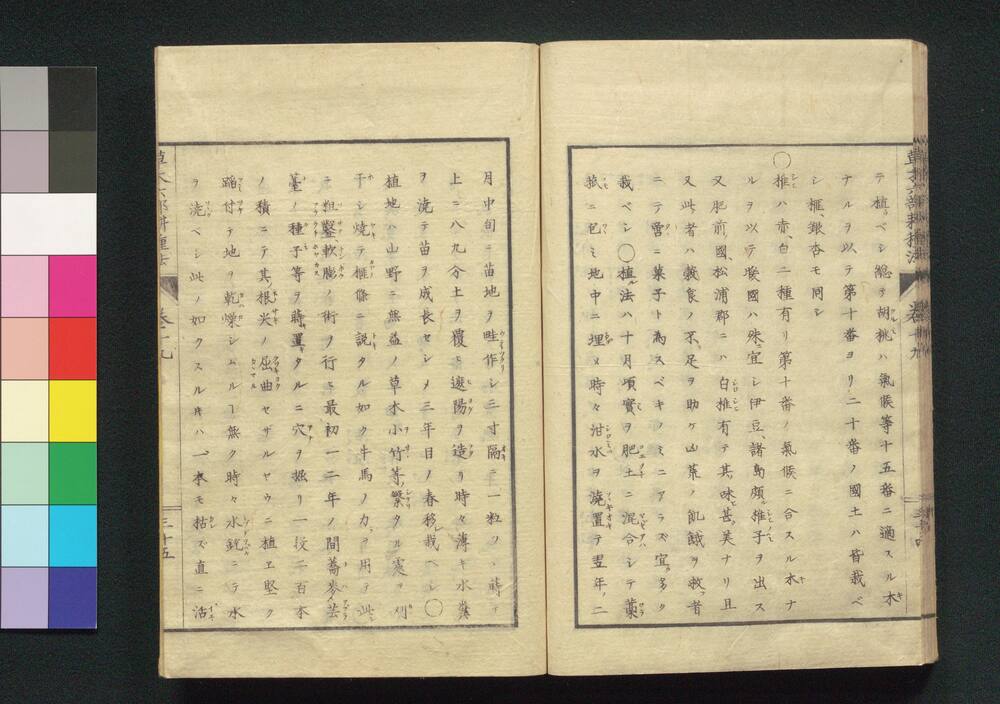 草木六部耕種法 卷十九
テ植ベシ總テ胡桃ハ氣候等十五番ニ適スル木
ナルヲ以テ第十番ヨリ二十番ノ國土ハ皆栽ベ
シ榧、銀杏モ同シ
〇椎ハ赤、白二種有リ第十番ノ氣候ニ合スル木ナ
ルヲ以テ暖國ハ殊ニ宜シ伊豆、諸島頗ル椎子ヲ出ス
又肥前國、松浦郡ニハ白椎有テ其味甚ダ美ナリ且
又此者ハ穀食ノ不足ヲ助ケ山菜ノ飢餓ヲ救フ者
ニテ啻ニ菓子ト為スベキノミニアラズ宜ク多ク
栽ベシ〇植ル法ハ十月頃實ヲ肥土ニ混合シテ藁
菰ニ包ミ地中ニ埋メ時々泔水ヲ澆置テ翌年ノ二
月中旬ニ苗地ヲ畦作シ三寸隔ニ一粒ツヽ蒔テ
上ニ八九分土ヲ覆ヒ遮陽ヲ造リ時々薄キ水糞
ヲ澆テ苗ヲ成長セシメ三年目ノ春移シ栽ベシ〇
植地ハ山野ニ無益ノ草木小竹等ノ繁タル處ヲ刈
干シ燒テ榧條ニ説タル如ク牛馬ノ力ヲ用テ此
ニ粗墾軟膨ノ術ヲ行ヒ最初一二年ノ間蕎麥、芸
薹ノ種子等ヲ蒔置タルニ穴ヲ掘リ一段二百本
ノ積ニテ其根尖ノ屈曲セザルヤウニ植ヱ堅ク
蹈付テ地ヲ乾燥シムルヿ無ク時々水銃ニテ水
ヲ澆ベシ此ノ如クスルキハ一本モ枯ズ直ニ活
草木六部耕種法 卷十九 三十五